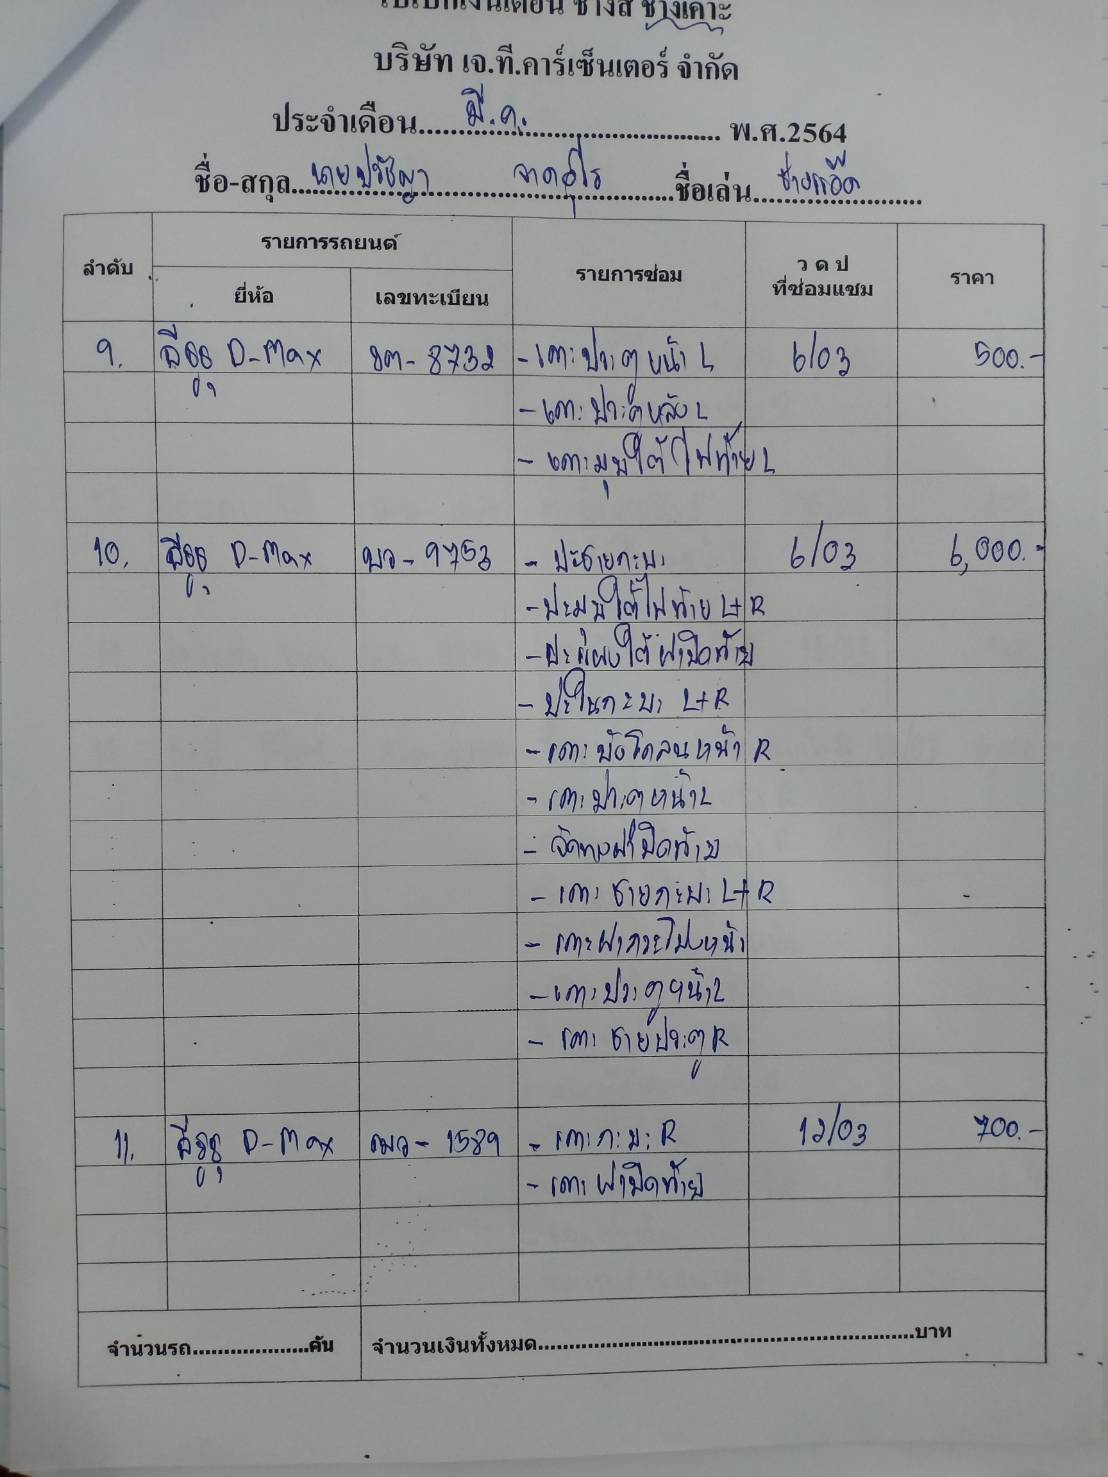 ใบเบิกเงินเดือน ช่างสี ช่างเคาะ
บริษัท เจ.ที.คาร์เซ็นเตอร์ จำกัด
ประจำเดือน....มี.ค.....พ.ศ.2564
ชื่อ-สกุล...นายปรัชญา.....ชื่อเล่น...ช่างแอ๊ด...
ลำดับ รายการรถยนต์ รายการซ่อม ว ด ป ที่ซ่อมแซม ราคา
ยี่ห้อ เลขทะเบียน
9. อีซูซุ D-Max ขต-8732 -เคาะประตูหน้า L 6/03 500.-
-เคาะประตูหลัง L
-เคาะมุมใต้ไฟท้าย L
10. อีซูซุ D-Max ผว-9753 -ปะชายกะบะ 6/03 6,000.-
-ปะมุมใต้ไฟท้าย L+R
-ปะแผงใต้ฝาปิดท้าย
-ปะในกะบะ L+R
-เคาะบังโคลนหน้า R
-เคาะประตูหน้า L
-จัดทรงฝาปิดท้าย
-เคาะชายกะบะ L+R
-เคาะฝากระโปรงหน้า
-เคาะประตูหน้า L
-เคาะชายประตู R
11. อีซูซุ D-Max ฒว-1589 -เคาะกะบะ R 12/03 700.-
-เคาะฝาปิดท้าย
จำนวนรถ....................คัน จำนวนเงินทั้งหมด............................................................บาท